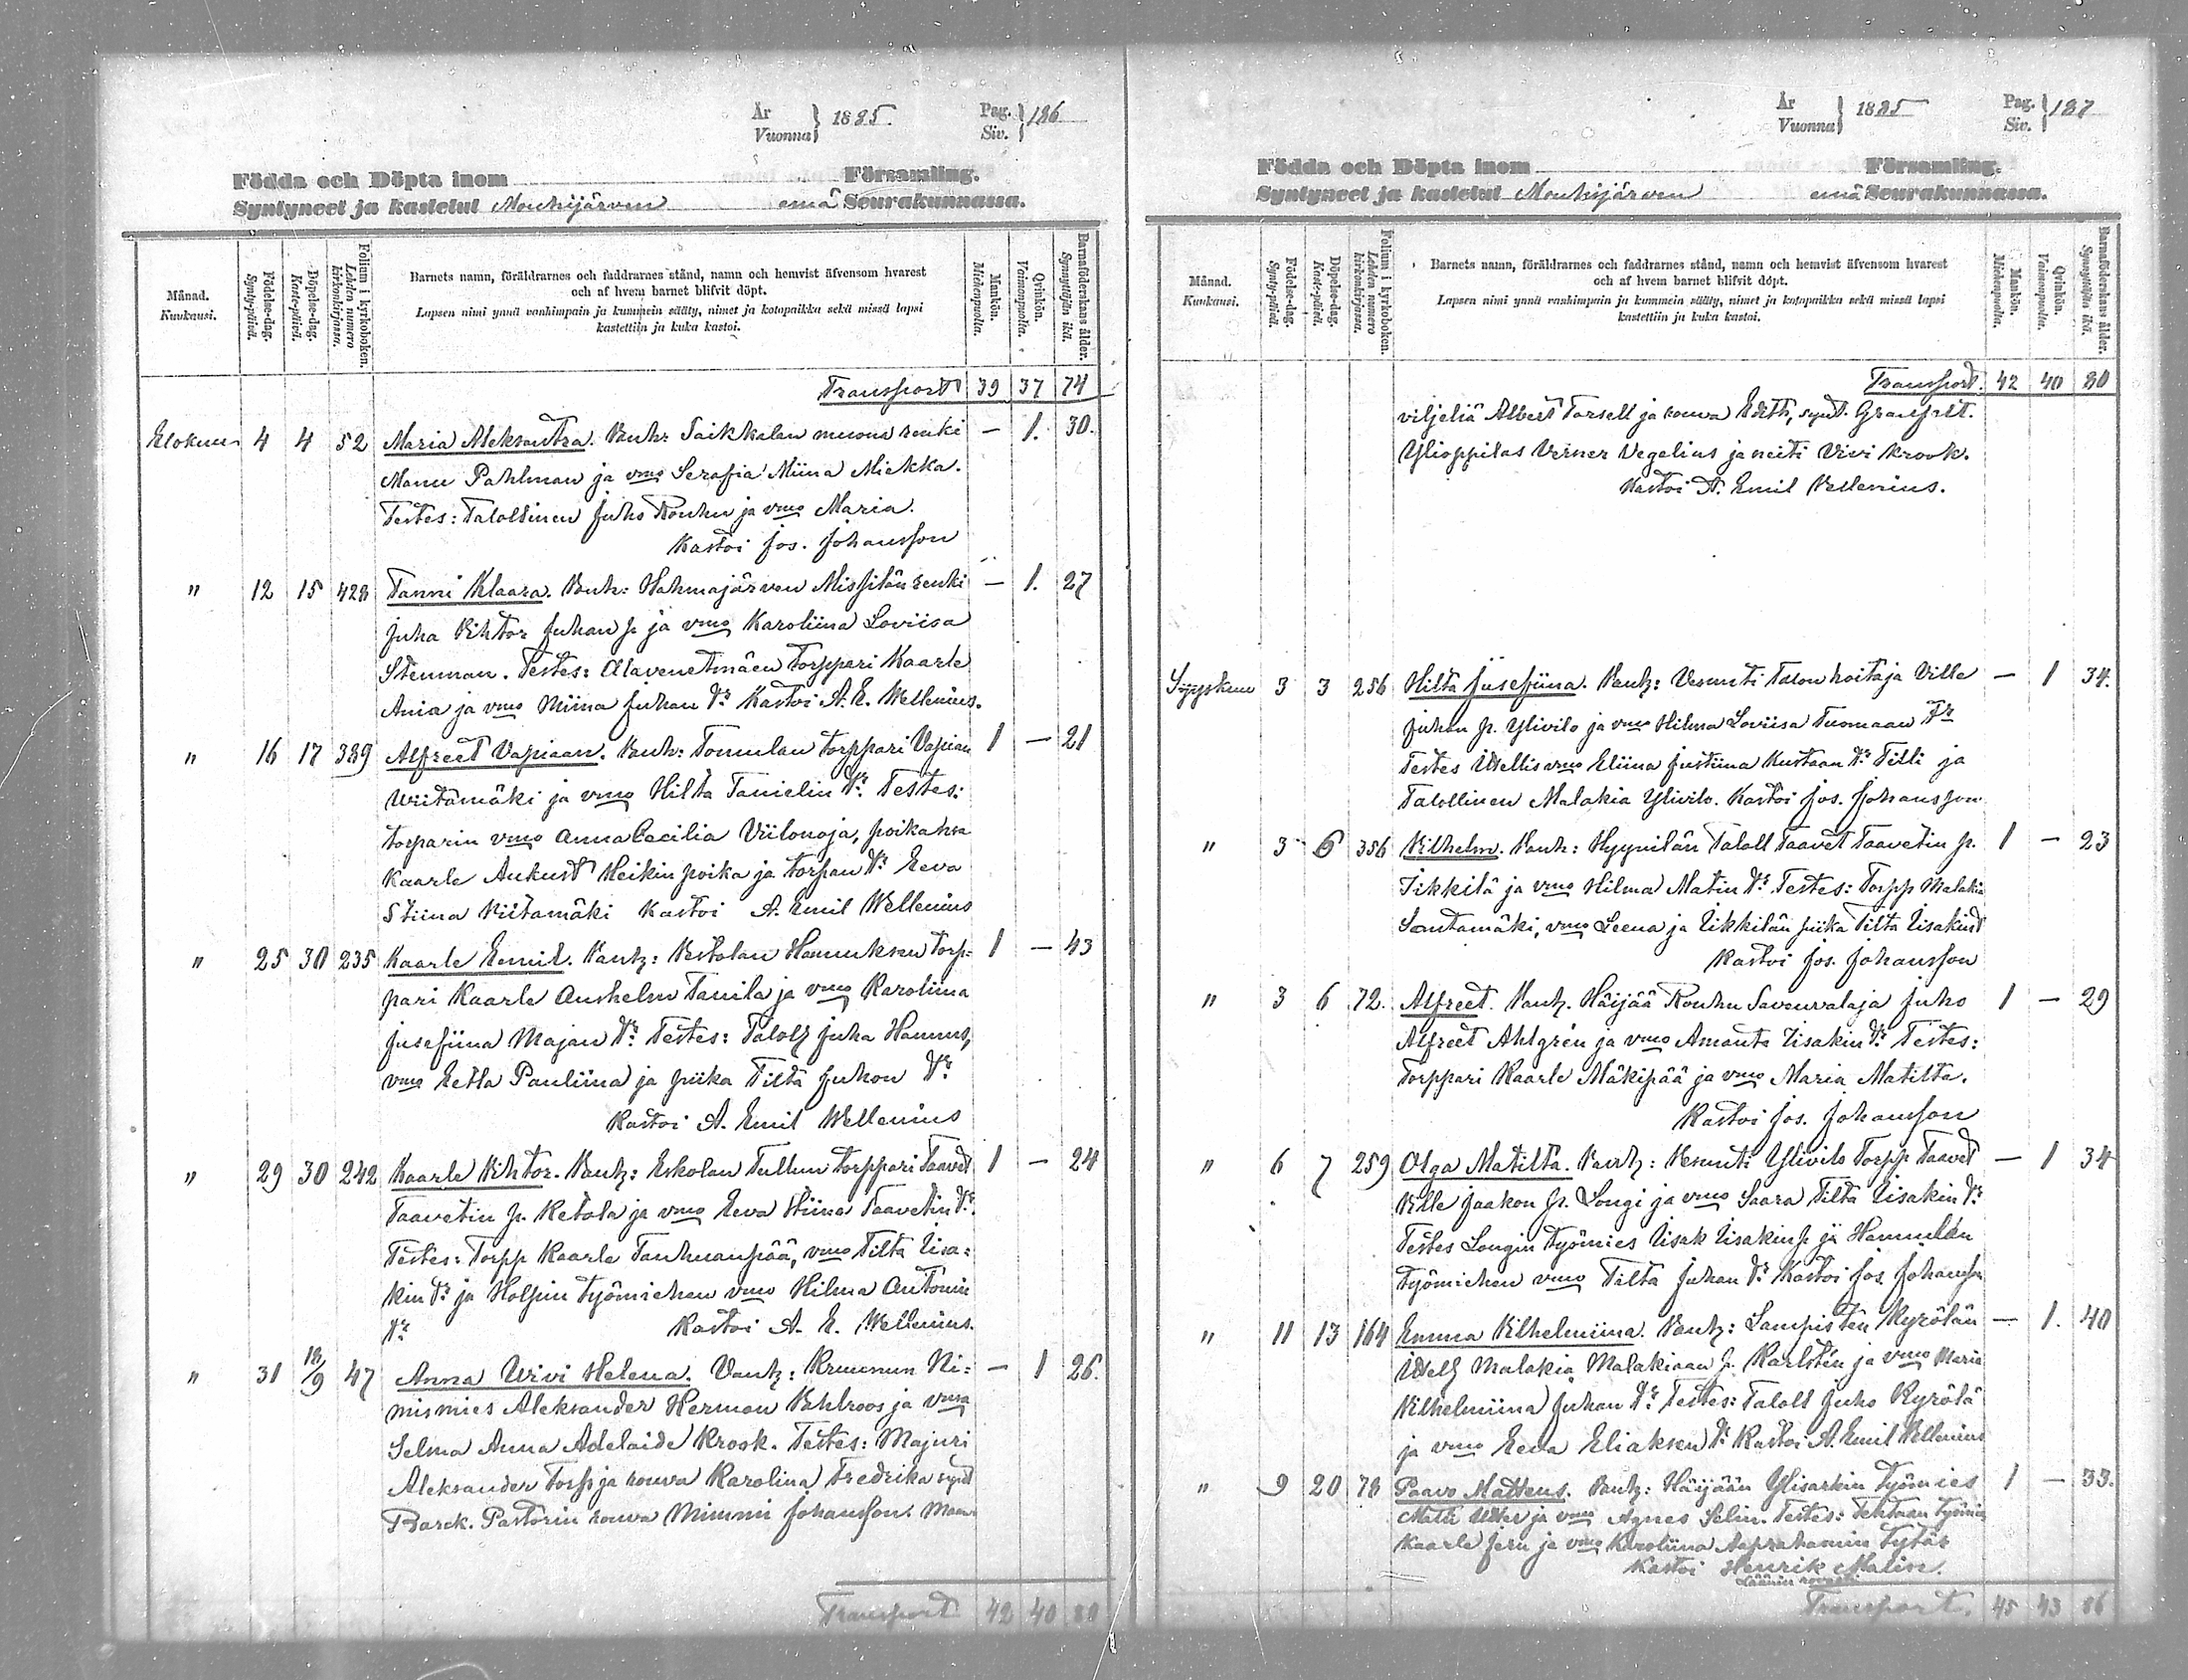 År
Vuonna } 1885.
Pag.
Siv. } 186
Födda och Döpta inom Församling.
Syntyneet ja kastetut Mouhijärven emä Seurakunnassa.
Månad.
Kuukausi.
Födelse-dag.
Synty-päivä.
Döpelse-dag.
Kaste-päivä.
Folium i kyrkoboken.
Lehden numero
kirkonkirjassa.
Barnets namn, föräldrarnes och faddrarnes stånd, namn och hemvist äfvensom hvarest
och af hvem barnet blifvit döpt.
Lapsen nimi ynnä vanhimpain ja kummein sääty, nimet ja kotopaikka sekä missä lapsi
kastettiin ja kuka kastoi.
Mankön.
Miehenpuolta.
Qvinkön.
Vaimonpuolta.
Barnaföderskans ålder.
Synnyttäjän ikä.
Transport 39 37 74
Elokuun 4 4 52 Maria Aleksantra. Vanh: Saikkalan muona renki — 1. 30.
Manu Pahlman ja vmo Serafia Miina Miekka.
Testes: Talollinen Juho Rouhu ja vmo Maria.
Kastoi Jos. Johansson
" 12 15 428 Fanni Klaara. Vanh: Hahmajärven Missilän renki — 1. 27
Juha Vihtor Juhan p. ja vmo Karoliina Loviisa
Stenman. Testes: Alavenetmäen Torppari Kaarle
Ania ja vmo Miina Juhan tr Kastoi A. E. Wellenius.
" 16 17 389 Alfreet Vapiaan. Vanh: Tomulan torppari Vapian 1 — 21
Wiitamäki ja vmo Hilta Tanielin tr. Testes:
torparin vmo Anna Cecilia Viilonoja, poika
Kaarle Aukust Heikin poika ja torpan tr Eeva
Stiina Viitamäki Kastoi A. Emil Wellenius
" 25 30 235 Kaarle Eemil. Vanh: Vestolan Hannuksen torp-
pari Kaarle Anshelm Tanila ja vmo Karoliina 1 — 43
Jusefiina Majan tr. Testes: Taloll Juha Hannus,
vmo Eetla Pauliina ja piika Tilta Juhon tr.
Kastoi A. Emil Wellenius
" 29 30 242 Kaarle Vihtor. Vanh: Eskolan Tullun torppari Taavet 1 — 24
Taavetin p. Ketola ja vmo Eeva Stiina Taavetin tr.
Testes: Torpp Kaarle Tanhuanpää, vmo Tilta Iisa-
kin tr ja Holpin työmiehen vmo Hilma Antonin
tr. Kastoi A. E. Wellenius.
" 31 18/9 47 Anna Wivi Helena. Vanh: Kruunun Ni- — 1 26.
mismies Aleksander Herman Vehlroos ja vmo
Selma Anna Adelaide Krook. Testes: Majuri
Aleksander Torss ja rouva Karolina Fredrika synt
Barck. Pastorin rouva Mimmi Johansson. Maan
Transport 42 40 80
År
Vuonna } 1885
Pag.
Siv. } 187
Födda och Döpta inom Församling.
Syntyneet ja kastetut Mouhijärven emä Seurakunnassa.
Månad.
Kuukausi.
Födelse-dag.
Synty-päivä.
Döpelse-dag.
Kaste-päivä.
Folium i kyrkoboken.
Lehden numero
kirkonkirjassa.
Barnets namn, föräldrarnes och faddrarnes stånd, namn och hemvist äfvensom hvarest
och af hvem barnet blifvit döpt.
Lapsen nimi ynnä vanhimpain ja kummein sääty, nimet ja kotopaikka sekä missä lapsi
kastettiin ja kuka kastoi.
Mankön.
Miehenpuolta.
Qvinkön.
Vaimonpuolta.
Barnaföderskans ålder.
Synnyttäjän ikä.
Transport. 42 40 80
viljeliä Albert Torsell ja rouva Edith, synt.
Ylioppilas Verner Vegelius ja neiti Vivi Krook.
Kastoi A. Emil Vellenius.
Syyskuu 3 3 256 Hilta Jusefiina. Vanh: Vesunti Talon hoitaja Ville — 1 34.
Juhan p. Ylivilo ja vmo Hilma Loviisa Tuomaan tr
Testes Itsellis vmo Eliina Justiina Kustaan tr Tilli ja
Talollinen Malakia Ylivilo. Kastoi Jos. Johansson
" 3 6 356 Vilhelm. Vanh: Hyynilän Taloll Taavet Taavetin p. 1 — 23
Iikkilä ja vmo Hilma Matin tr. Testes: Torpp Malakia
Santamäki, vmo Leena ja Iikkilän piika Tilta Iisakint
Kastoi Jos. Johansson
" 3 6 72. Alfreet. Vanh. Häijää Rouhu Savenvalaja Juho 1 — 29
Alfreet Ahlgrén ja vmo Amanta Iisakin tr. Testes:
Torppari Kaarle Mäkipää ja vmo Maria Matilta.
Kastoi Jos. Johansson
" 6 7 259 Olga Matilta. Vanh: Vesunti Ylivilo Torpp Taavet — 1 34
Ville Jaakon p. Longi ja vmo Saara Tilta Iisakin tr.
Testes Longin Työmies Iisak Iisakin p ja Hannulan
työmiehen vmo Tilta Juhan tr. Kastoi Jos. Johansson
" 11 13 164 Emma Vilhelmiina. Vanh: Lampisten Kyrölän — 1. 40
Itsell Malakia Malakiaan p. Karlstén ja vmo Maria
Vilhelmiina Juhan tr. Testes: Taloll Juho Kyrölä
ja vmo Eeva Eliaksen tr. Kastoi A. Emil Vellenius
" 9 20 78 Paavo Matteus. Vanh: Häijään Ylisarkin Työmies 1 — 33.
Matti ja vmo Agnes Selin. Testes: Tehtaan työmies
Kaarle Jern ja vmo Karoliina Aaprahamin tytär
Kastoi Henrik Malin.
Läänin rovasti
Transport. 45 43 86